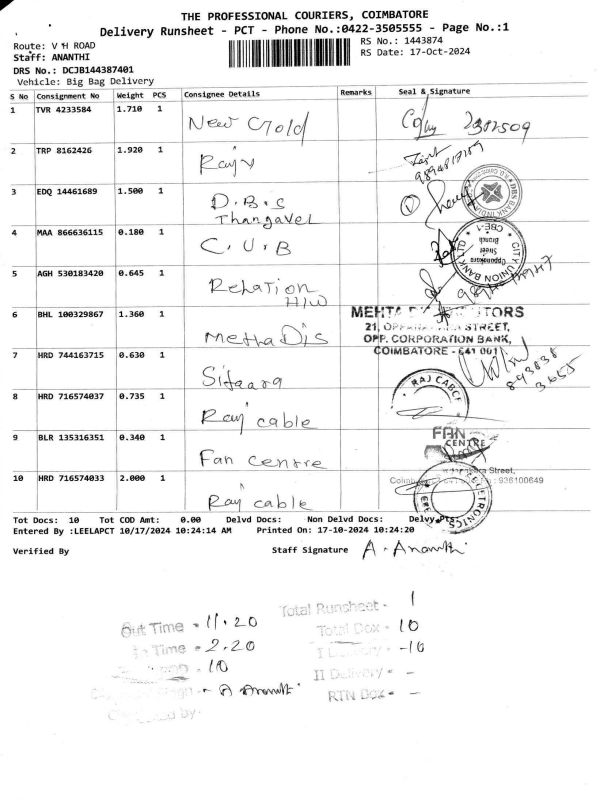 THE PROFESSIONAL COURIERS, COIMBATORE
Delivery Runsheet - PCT - Phone No.:0422-3505555 - Page No.:1
Route: V H ROAD
RS No.: 1443874
Staff: ANANTHI
RS Date: 17-Oct-2024
DRS No.: DCJB144387401
Vehicle: Big Bag Delivery
S No Consignment No Weight PCS Consignee Details Remarks Seal & Signature
1 TVR 4233584 1.710 1 New Gold
2 TRP 8162426 1.920 1 Rajv
3 EDQ 14461689 1.500 1 D.B.S
Thangavel
DBS BANK INDIA
4 MAA 866636115 0.180 1 C.U.B
CITY UNION BANK LTD
Oppanakara
Street
Branch
CBE-1
5 AGH 530183420 0.645 1 Relation
H/W
6 BHL 100329867 1.360 1 Metha Dis
MEHTA
21, STREET,
OPP. CORPORATION BANK,
COIMBATORE - 641 001
7 HRD 744163715 0.630 1 Sitaara
8 HRD 716574037 0.735 1 Raj cable
RAJ CABLE
9 BLR 135316351 0.340 1 Fan centre
FAN
CENTRE
10 HRD 716574033 2.000 1 Raj cable
Street,
: 936100649
Tot Docs: 10 Tot COD Amt: 0.00 Delvd Docs: Non Delvd Docs: Delvy Pts:
Entered By :LEELAPCT 10/17/2024 10:24:14 AM Printed On: 17-10-2024 10:24:20
Verified By
Staff Signature A. Ananthi
Out Time - 11.20
In Time - 2.20
- 10
- A Ananthi
by-
Total Runsheet - 1
Total Dox - 10
I Delivery - -10
II Delivery - -
RTN Dox - -